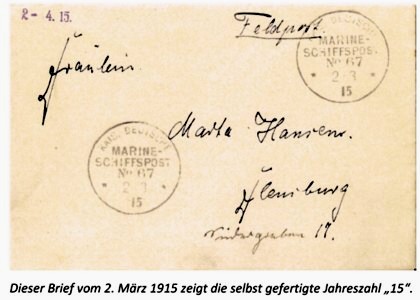 2- 4. 15.
Feldpost.
KAIS. DEUTSCHE
MARINE-
SCHIFFSPOST
No 67
* 2-3 *
15
Fräulein
Marta Hansen.
KAIS. DEUTSCHE
MARINE-
SCHIFFSPOST
No 67
* 2-3 *
15
Flensburg
19.
Dieser Brief vom 2. März 1915 zeigt die selbst gefertigte Jahreszahl „15“.